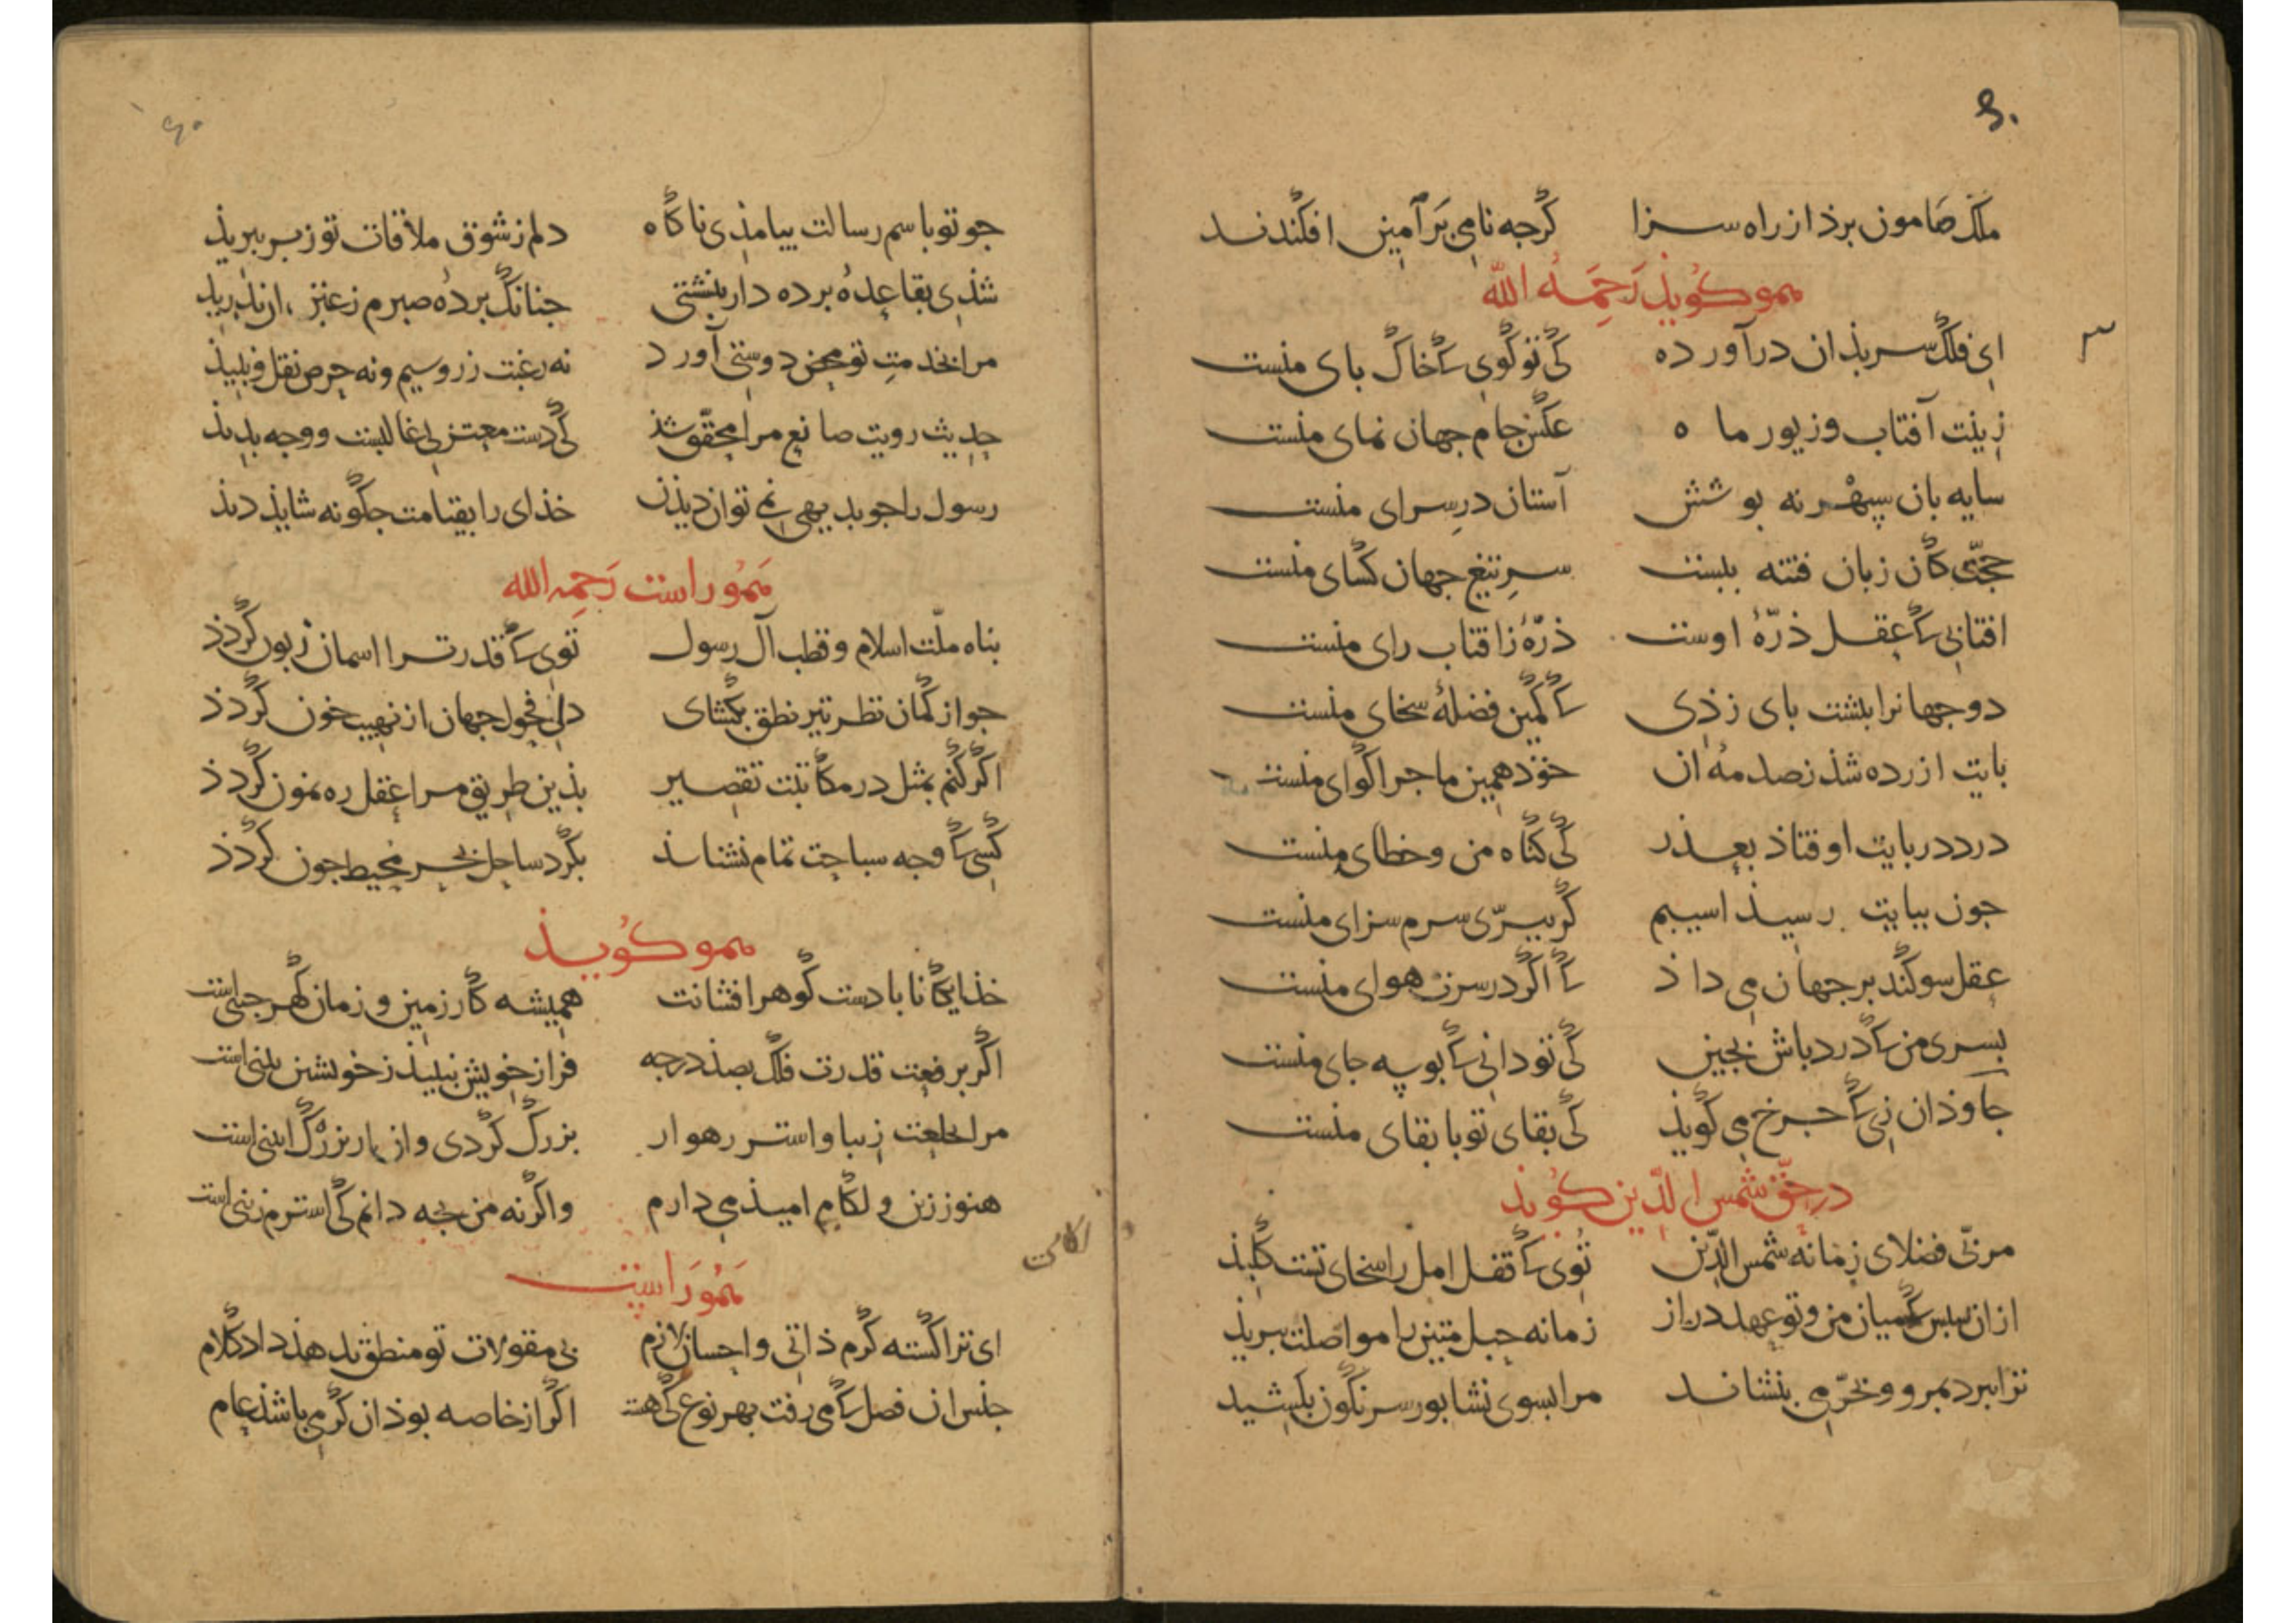 ملک صامون برذ از راه سزا کرجه نامی بر آمین افکندند
همو کوید رحمه الله
ای فلک سر بذان درآورده کی تو کوی که خاک بای منست
زینت آفتاب و زیور ماه عکس جام جهان نمای منست
سایه بان سپهر نه بوشش آستان در سرای منست
حجتی کان زبان فتنه ببست سر تیغ جهان کشای منست
افتابی که عقل ذره اوست ذره ز افتاب رای منست
دو جهانرا ببشت بای زذی که کمین فضله سخای منست
بایت ازرده شذ ز صدمه ان خوذ همین ماجرا کوای منست
درد در بایت اوفتاذ بعذر کی کناه من و خطای منست
جون ببایت رسیذ اسیبم کر ببری سرم سزای منست
عقل سوکند بر جهان می داذ که اکر در سرت هوای منست
بسری من که درد باش بجین کی تو دانی که بوسه جای منست
جاوذان زی که جرخ می کویذ کی بقای تو با بقای منست
در حق شمس الدین کوید
مربی فضلای زمانه شمس الدین توی که قفل امل را سخای تست کلیذ
ازان سبس که میان من و تو عهد دراز زمانه حبل متین را مواصلت ببریذ
ترا ببرد بمرو و بخرمی بنشاند مرا بسوی نشابور سرنکون بکشید
جو تو باسم رسالت بیامذی ناکاه دلم ز شوق ملاقات تو ز بر ببریذ
شذی بقاعده برده دار بنشتی جنانک برده صبرم ز عنبر ازند بدرید
مرا بخدمت تو محض دوستی آورد نه رغبت زر و سیم و نه حرص نقل و نبیذ
حدیث رویت صانع مرا محقق شذ کی دست معتزلی غالبست و وجه بدیذ
رسول را جو بدیهی نمی توان دیذن خذای را بقیامت جکونه شایذ دیذ
هموراست رحمه الله
بناه ملت اسلام و قطب آل رسول توی که قدر ترا اسمان زبون کردذ
جو از کمان نظر تیر نطق بکشای دل فحول جهان از نهیب خون کردذ
اکر کنم بمثل در مکاتبت تقصیر بذین طریق مرا عقل ره نمون کردذ
کسی که وجه سباحت تمام نشناسذ بکرد ساحل بحر محیط جون کردذ
همو کویذ
خذایکانا با دست کوهر افشانت همیشه کار زمین و زمان کهر جنی است
اکر برفعت قدرت فلک بصذ درجه فراز خویش نبیند ز خویشتن بینی است
مرا بخلعت زیبا و استر رهوار بزرک کردی و از یار بزرک اینی است
هنوز زین و لکام امیذ می دارم و اکر نه من بجه دانم کی استرم زینی است
هموراست
ای ترا کشته کرم ذاتی و احسان لازم بی مقولات تو منطق ندهذ داد کلام
جنس ان فصل که می رفت بهر نوع کی هست اکر از خاصه بوذ ان کرمی باشذ عام